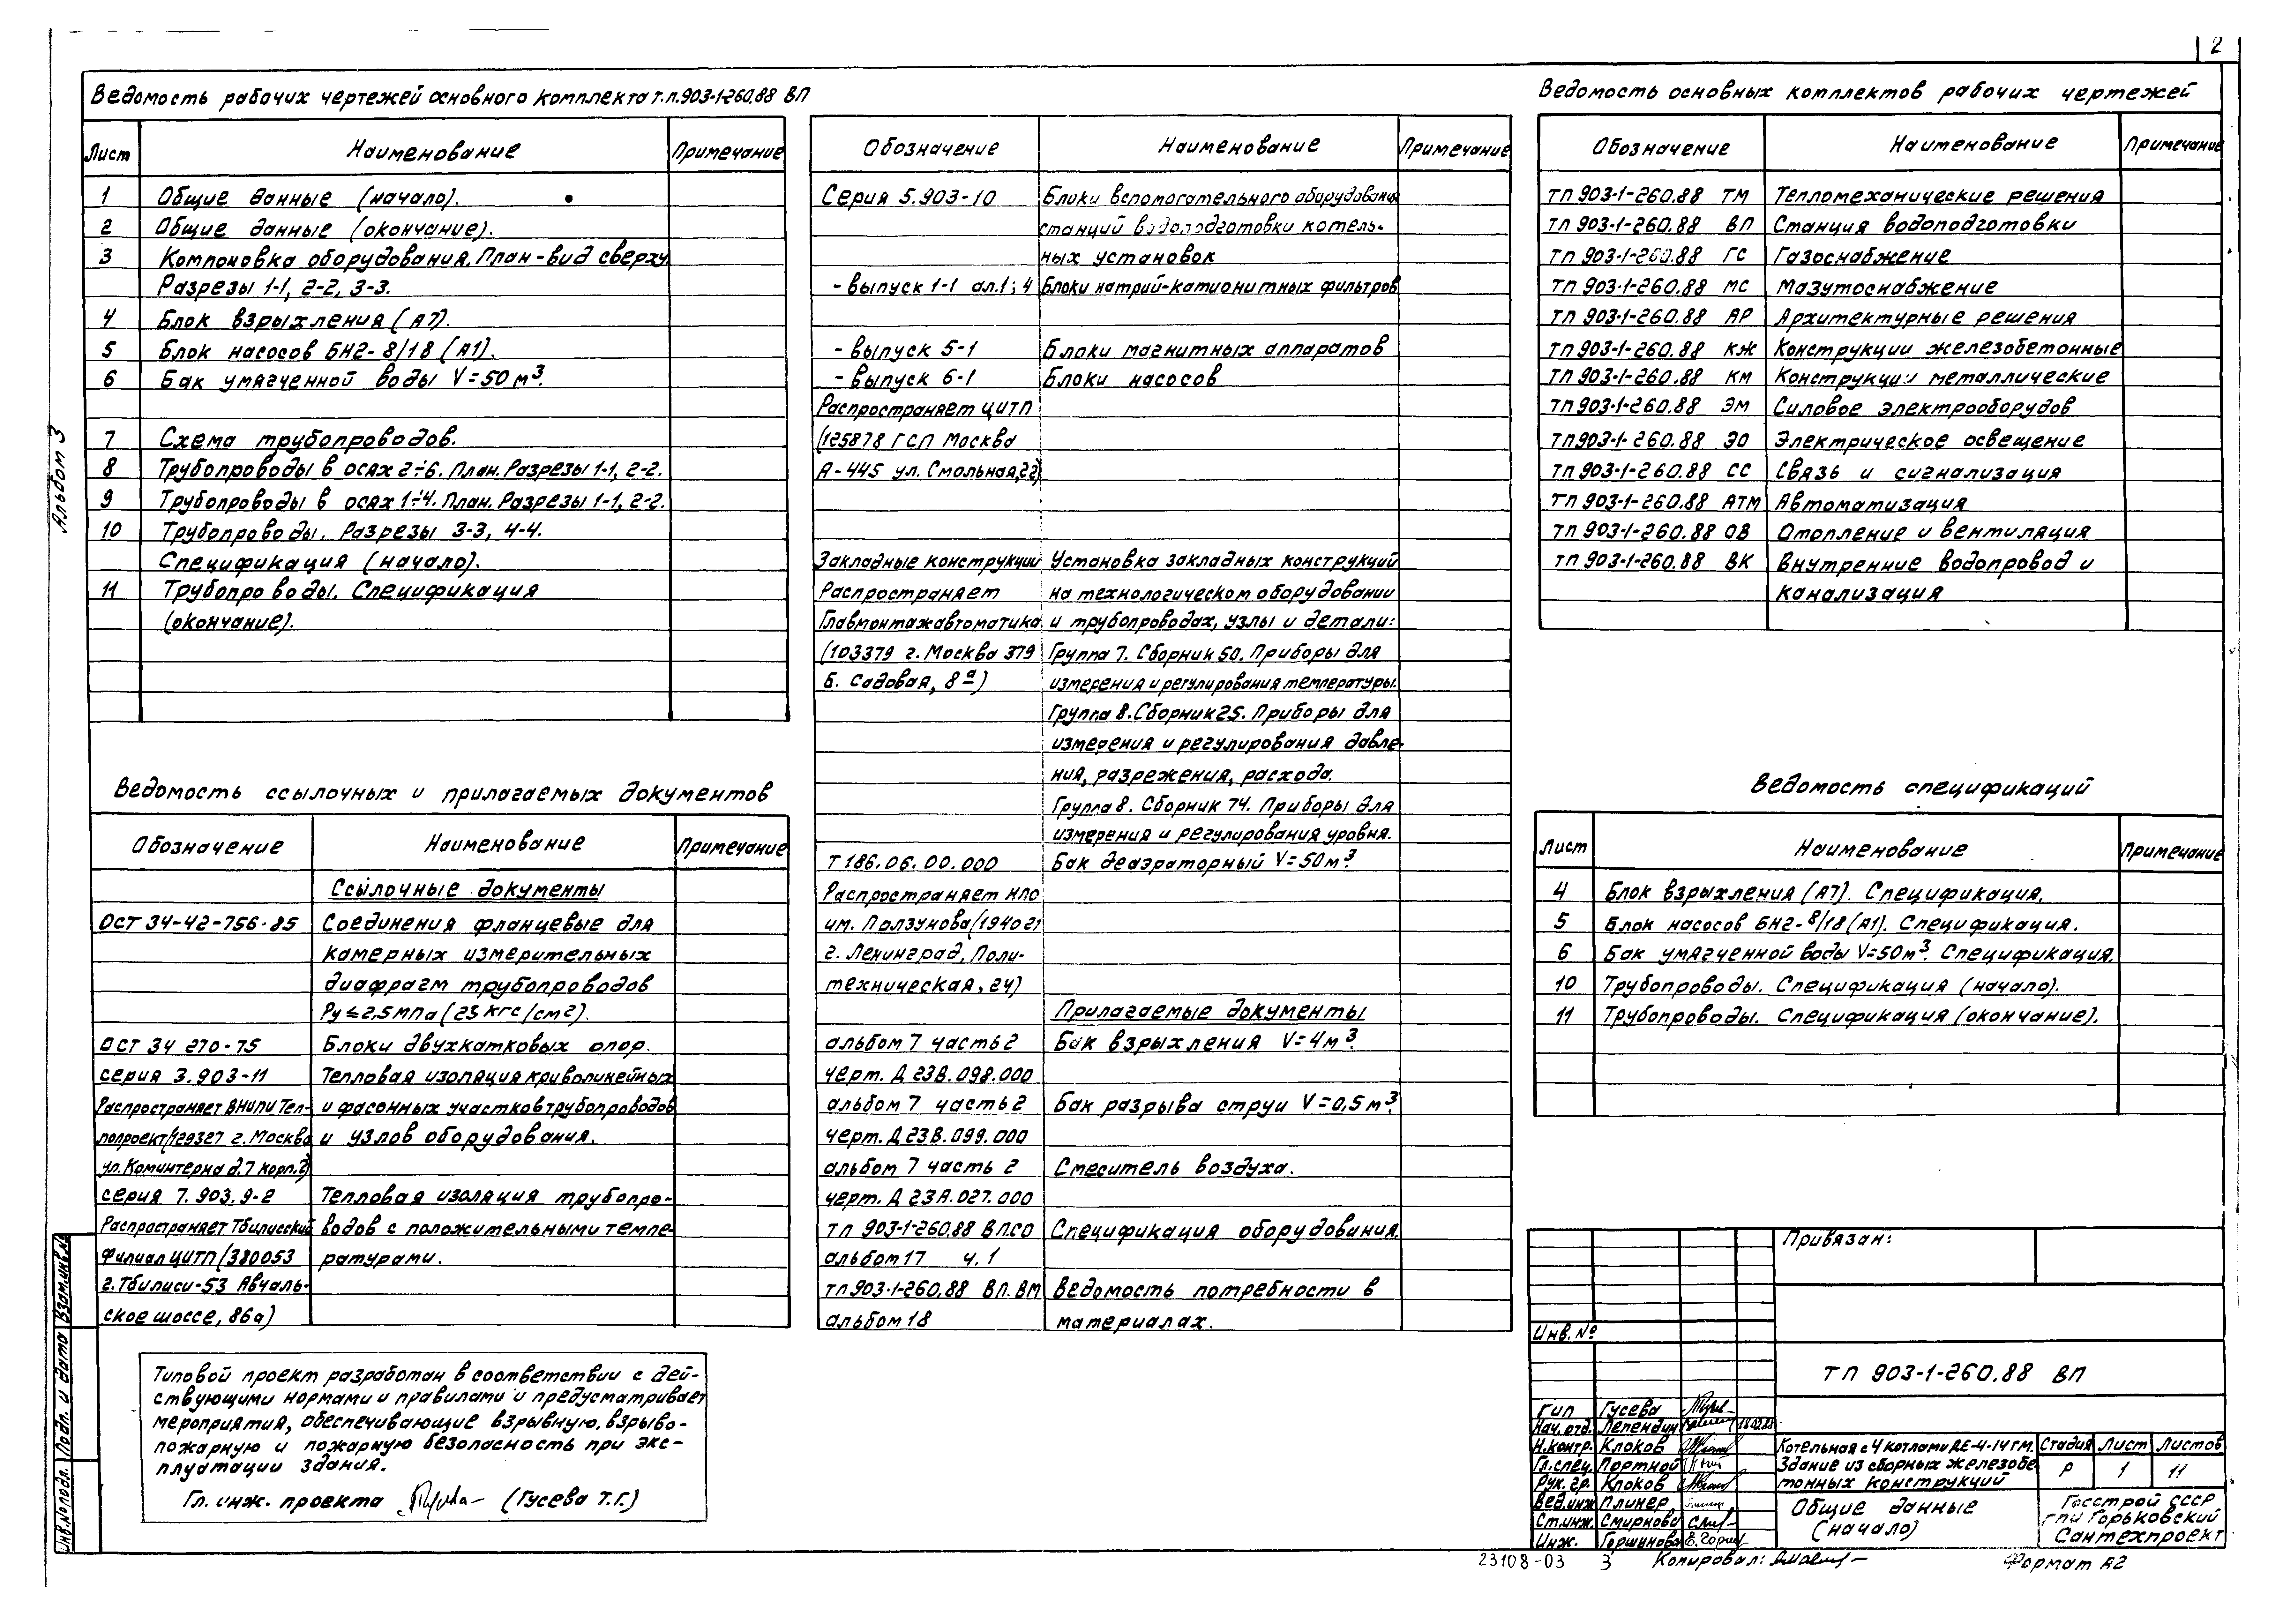 2
Альбом 3
Ведомость рабочих чертежей основного комплекта т.п.903-1-260.88 ВП
Лист Наименование Примечание
1 Общие данные (начало).
2 Общие данные (окончание).
3 Компоновка оборудования. План-вид сверху.
Разрезы 1-1, 2-2, 3-3.
4 Блок взрыхления (А7).
5 Блок насосов БН2-8/18 (А1).
6 Бак умягченной воды V=50м³.
7 Схема трубопроводов.
8 Трубопроводы в осях 2÷6. План. Разрезы 1-1, 2-2.
9 Трубопроводы в осях 1÷4. План. Разрезы 1-1, 2-2.
10 Трубопроводы. Разрезы 3-3, 4-4.
Спецификация (начало).
11 Трубопроводы. Спецификация
(окончание).
Ведомость ссылочных и прилагаемых документов
Обозначение Наименование Примечание
Ссылочные документы
ОСТ 34-42-756-85 Соединения фланцевые для
камерных измерительных
диафрагм трубопроводов
Ру≤2,5МПа (25кгс/см2).
ОСТ 34 270-75 Блоки двухкатковых опор.
серия 3.903-11 Тепловая изоляция криволинейных
Распространяет ВНИПИ Теп- и фасонных участков трубопроводов
лопроект (129327 г. Москва и узлов оборудования.
ул. Коминтерна д.7 корп.2)
серия 7.903.9-2 Тепловая изоляция трубопро-
Распространяет Тбилисский водов с положительными темпе-
филиал ЦИТП (380053 ратурами.
г. Тбилиси-53 Авчаль-
ское шоссе, 86а)
Типовой проект разработан в соответствии с дей-
ствующими нормами и правилами и предусматривает
мероприятия, обеспечивающие взрывную, взрыво-
пожарную и пожарную безопасность при экс-
плуатации здания.
Гл. инж. проекта (Гусева Т.Г.)
Обозначение Наименование Примечание
Серия 5.903-10 Блоки вспомогательного оборудования
станций водоподготовки котель-
ных установок
- выпуск 1-1 ал.1; 4 Блоки натрий-катионитных фильтров
- выпуск 5-1 Блоки магнитных аппаратов
- выпуск 6-1 Блоки насосов
Распространяет ЦИТП
(125878 ГСП Москва
А-445 ул. Смольная,22)
Закладные конструкции Установка закладных конструкций
Распространяет на технологическом оборудовании
Главмонтажавтоматика и трубопроводах, узлы и детали:
(103379 г. Москва 379 Группа 7. Сборник 50. Приборы для
Б. Садовая, 8а) измерения и регулирования температуры.
Группа 8. Сборник 25. Приборы для
измерения и регулирования давле-
ния, разрежения, расхода.
Группа 8. Сборник 74. Приборы для
измерения и регулирования уровня.
Т 186.06.00.000 Бак деаэраторный V=50м³.
Распространяет НПО
им. Ползунова (194021
г. Ленинград, Поли-
техническая, 24)
Прилагаемые документы
альбом 7 часть 2 Бак взрыхления V=4м³.
черт. Д 23В.098.000
альбом 7 часть 2 Бак разрыва струи V=0,5м³.
черт. Д 23В.099.000
альбом 7 часть 2 Смеситель воздуха.
черт. Д 23А.027.000
тп 903-1-260.88 ВП.СО Спецификация оборудования.
альбом 17 ч.1
тп 903-1-260.88 ВП.ВМ Ведомость потребности в
альбом 18 материалах.
Ведомость основных комплектов рабочих чертежей
Обозначение Наименование Примечание
ТП 903-1-260.88 ТМ Тепломеханические решения
ТП 903-1-260.88 ВП Станция водоподготовки
ТП 903-1-260.88 ГС Газоснабжение
ТП 903-1-260.88 МС Мазутоснабжение
ТП 903-1-260.88 АР Архитектурные решения
ТП 903-1-260.88 КЖ Конструкции железобетонные
ТП 903-1-260.88 КМ Конструкции металлические
ТП 903-1-260.88 ЭМ Силовое электрооборудов
ТП 903-1-260.88 ЭО Электрическое освещение
ТП 903-1-260.88 СС Связь и сигнализация
ТП 903-1-260.88 АТМ Автоматизация
ТП 903-1-260.88 ОВ Отопление и вентиляция
ТП 903-1-260.88 ВК Внутренние водопровод и
канализация
Ведомость спецификаций
Лист Наименование Примечание
4 Блок взрыхления (А7). Спецификация.
5 Блок насосов БН2-8/18 (А1). Спецификация.
6 Бак умягченной воды V=50м³. Спецификация.
10 Трубопроводы. Спецификация (начало).
11 Трубопроводы. Спецификация (окончание).
Привязан:
Инв. №
ТП 903-1-260.88 ВП
ГИП Гусева
Нач. отд. Лепендин
Н.контр. Клоков
Гл.спец. Портной
Рук. гр. Клоков
Вед.инж. Плинер
Ст.инж. Смирнова
Инж. Горшунова
Котельная с 4 котлами ДЕ-4-14ГМ. Стадия Лист Листов
Здание из сборных железобе- Р 1 11
тонных конструкций
Общие данные
(начало)
Госстрой СССР
ГПИ Горьковский
Сантехпроект
23108-03 3 Копировал: Формат А2
Инв.№подл. Подп. и дата Взам.инв.№